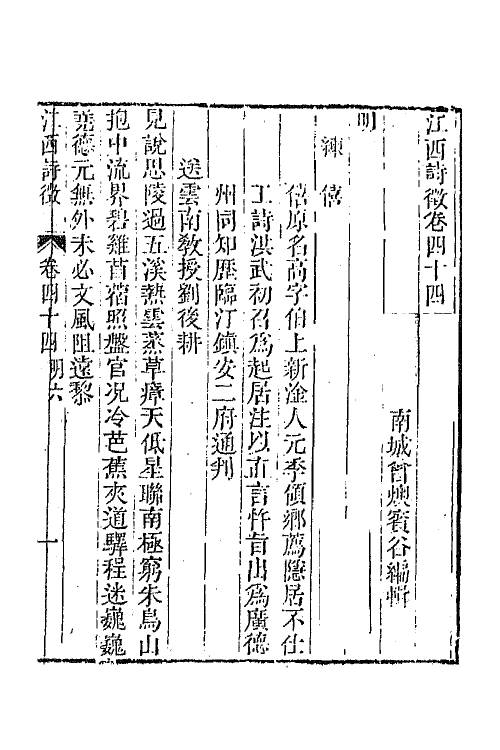 江西詩徵卷四十四
南城曾燠賓谷編輯
明
練僖
僖原名高字伯上新淦人元季領鄉薦隱居不仕
工詩洪武初召爲起居注以直言忤旨出爲廣德
州同知歷臨汀鎭安二府通判
送雲南敎授劉後耕
見說思陵過五溪熱雲蒸草瘴天低星聯南極窮朱鳥山
抱中流界碧雞苜蓿照盤官况冷芭蕉夾道驛程迷巍巍
堯德元無外未必文風阻遠黎
江西詩徵 卷四十四 明六 一